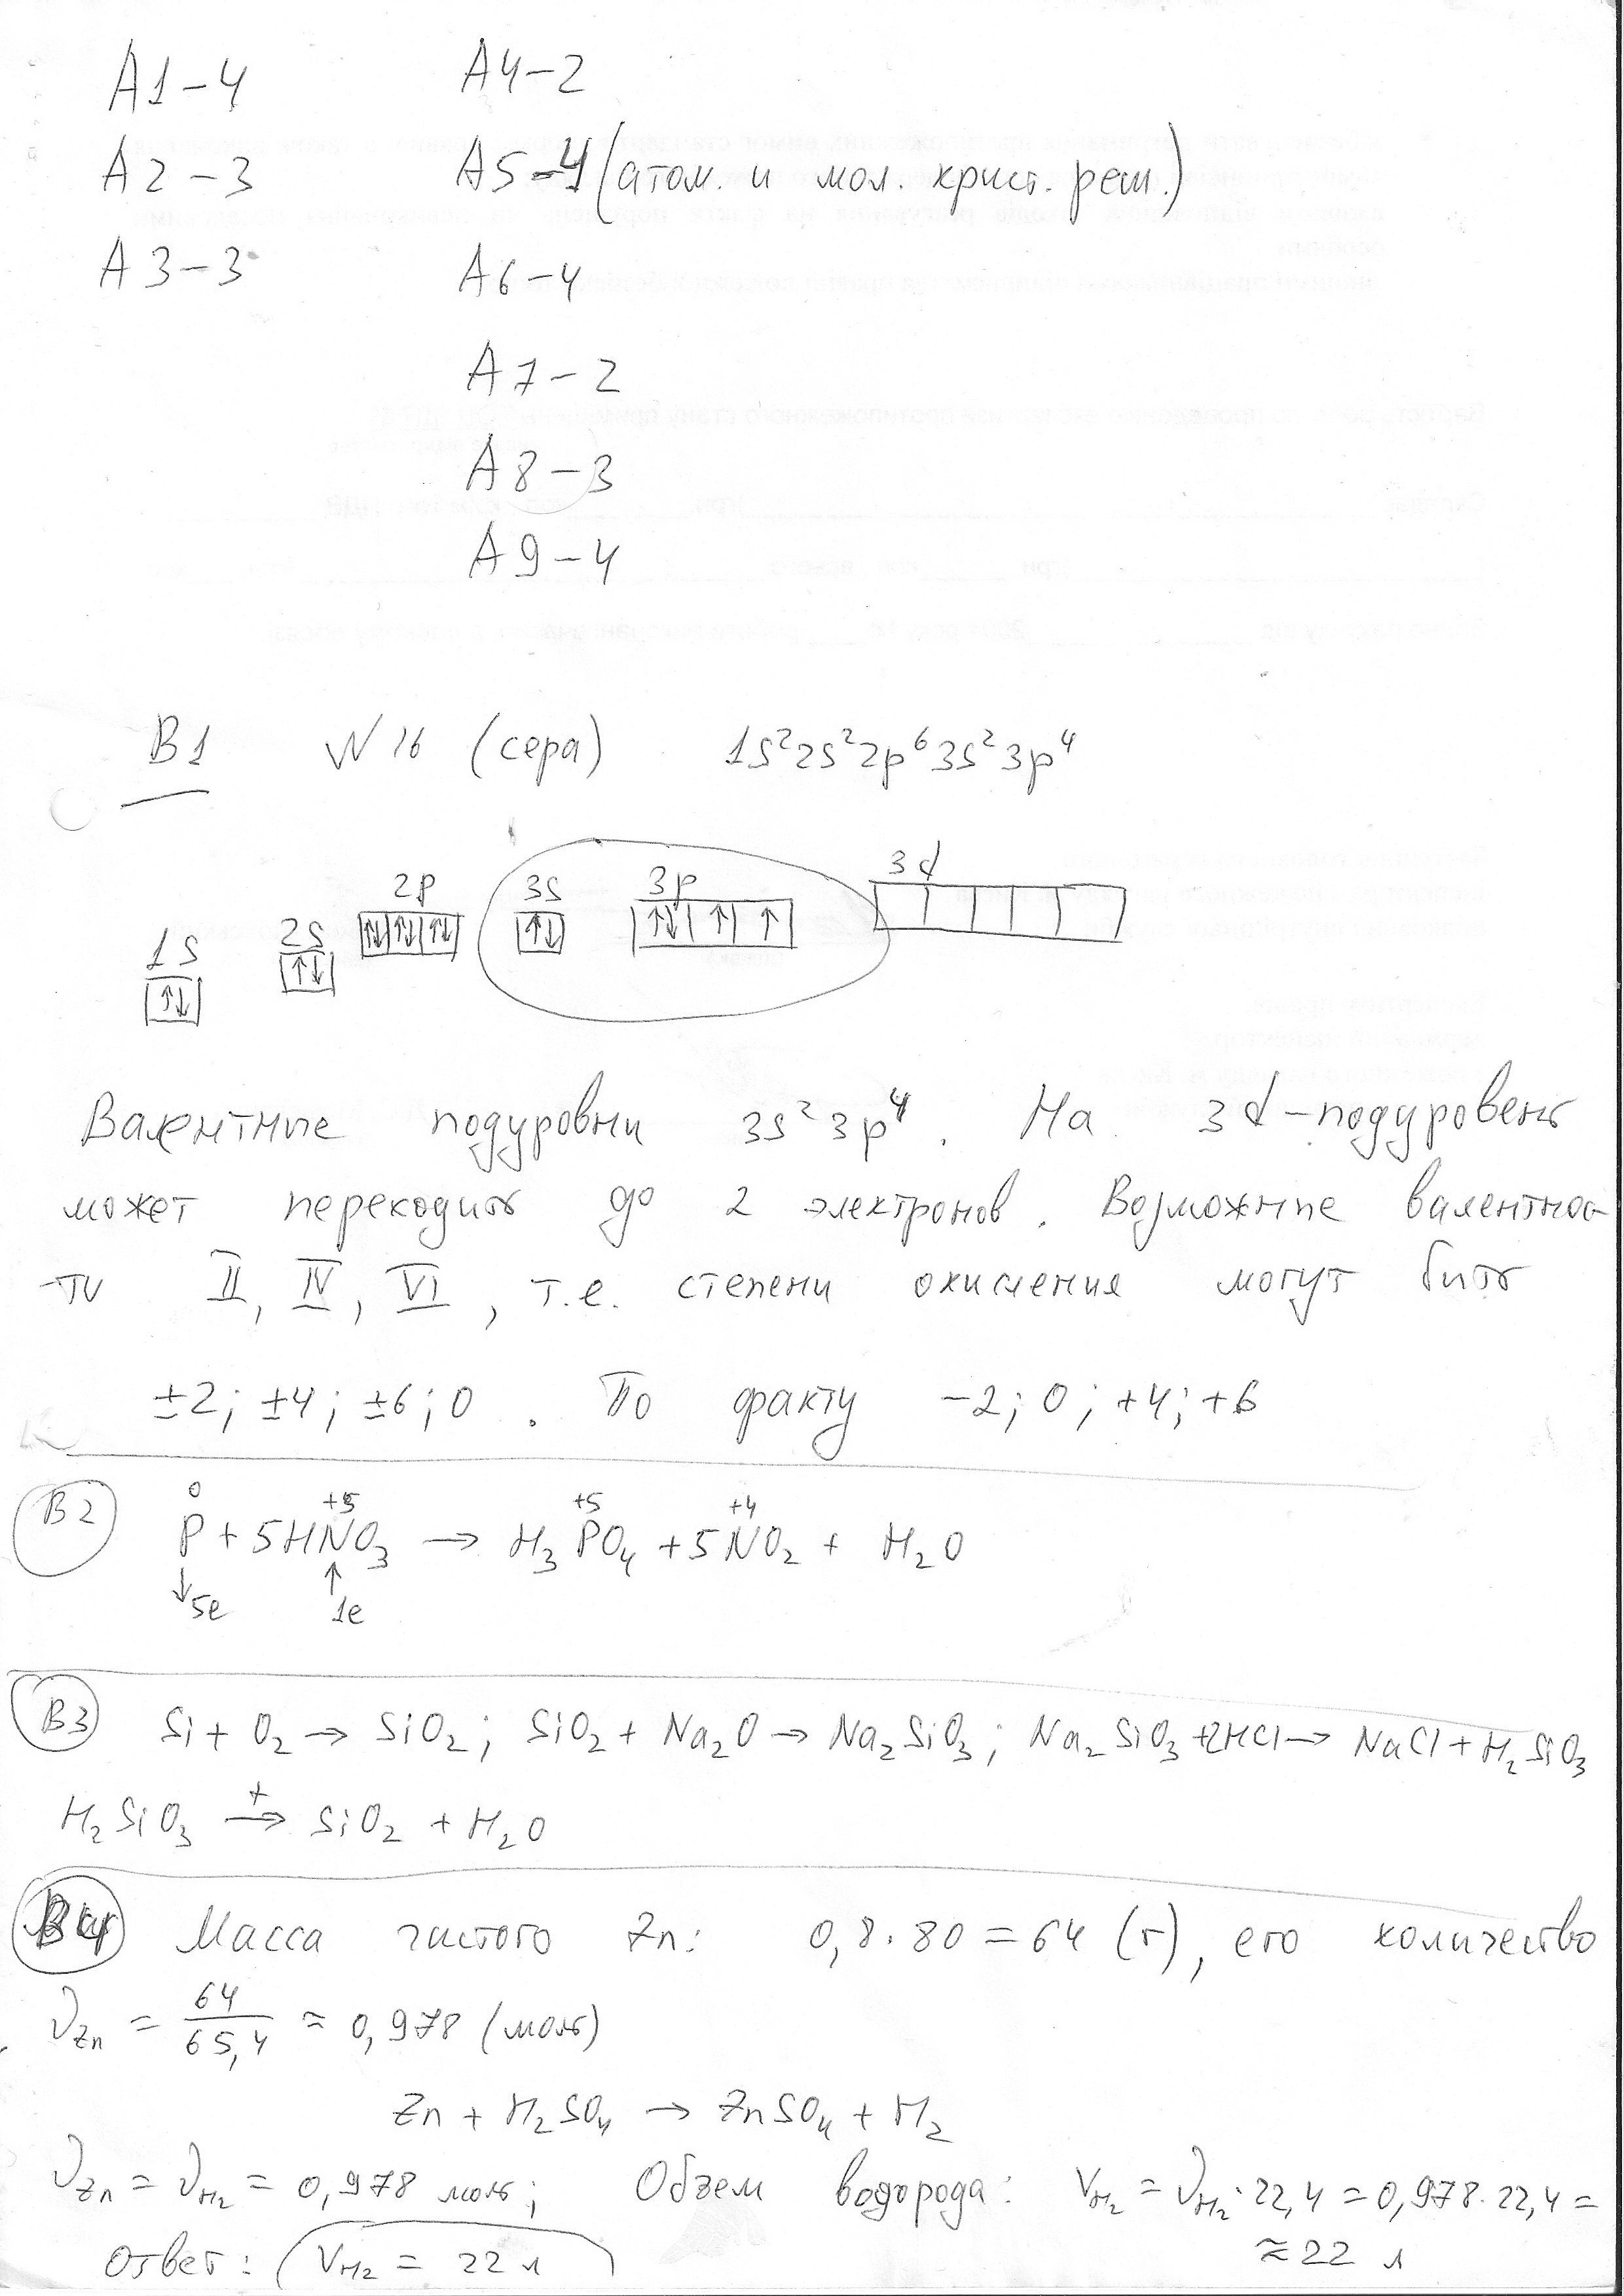 А1-4
А2-3
А3-3
А4-2
А5-4 (атом. и мол. крист. реш.)
А6-4
А7-2
А8-3
А9-4
В1 №16 (сера) 1s²2s²2p⁶3s²3p⁴
1s 2s 2p 3s 3p 3d
Валентные подуровни 3s²3p⁴. На 3d-подуровень
может переходить до 2 электронов. Возможные валентнос-
ти II, IV, VI, т.е. степени окисления могут быть
±2; ±4; ±6; 0. По факту -2; 0; +4; +6
0 +5 +5 +4
В2 P + 5HNO₃ → H₃PO₄ + 5NO₂ + H₂O
↓5e ↑1e
В3 Si + O₂ → SiO₂; SiO₂ + Na₂O → Na₂SiO₃; Na₂SiO₃+2HCl→ NaCl + H₂SiO₃
H₂SiO₃ →(t) SiO₂ + H₂O
В4 Масса чистого Zn: 0,8·80 = 64 (г), его количество
ν_Zn = 64/65,4 ≈ 0,978 (моль)
Zn + H₂SO₄ → ZnSO₄ + H₂
ν_Zn = ν_H₂ = 0,978 моль; Объем водорода: V_H₂ = ν_H₂·22,4 = 0,978·22,4 =
≈ 22 л
Ответ: V_H₂ = 22 л